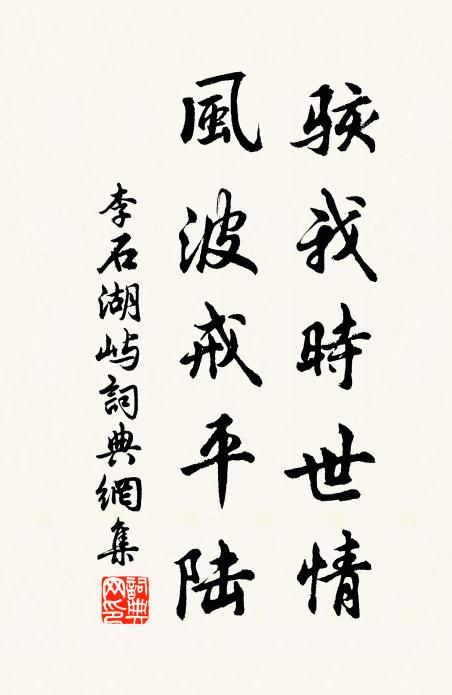 骇我時世情
風波戒平陆
李石湖屿詞典網集
詞典网印